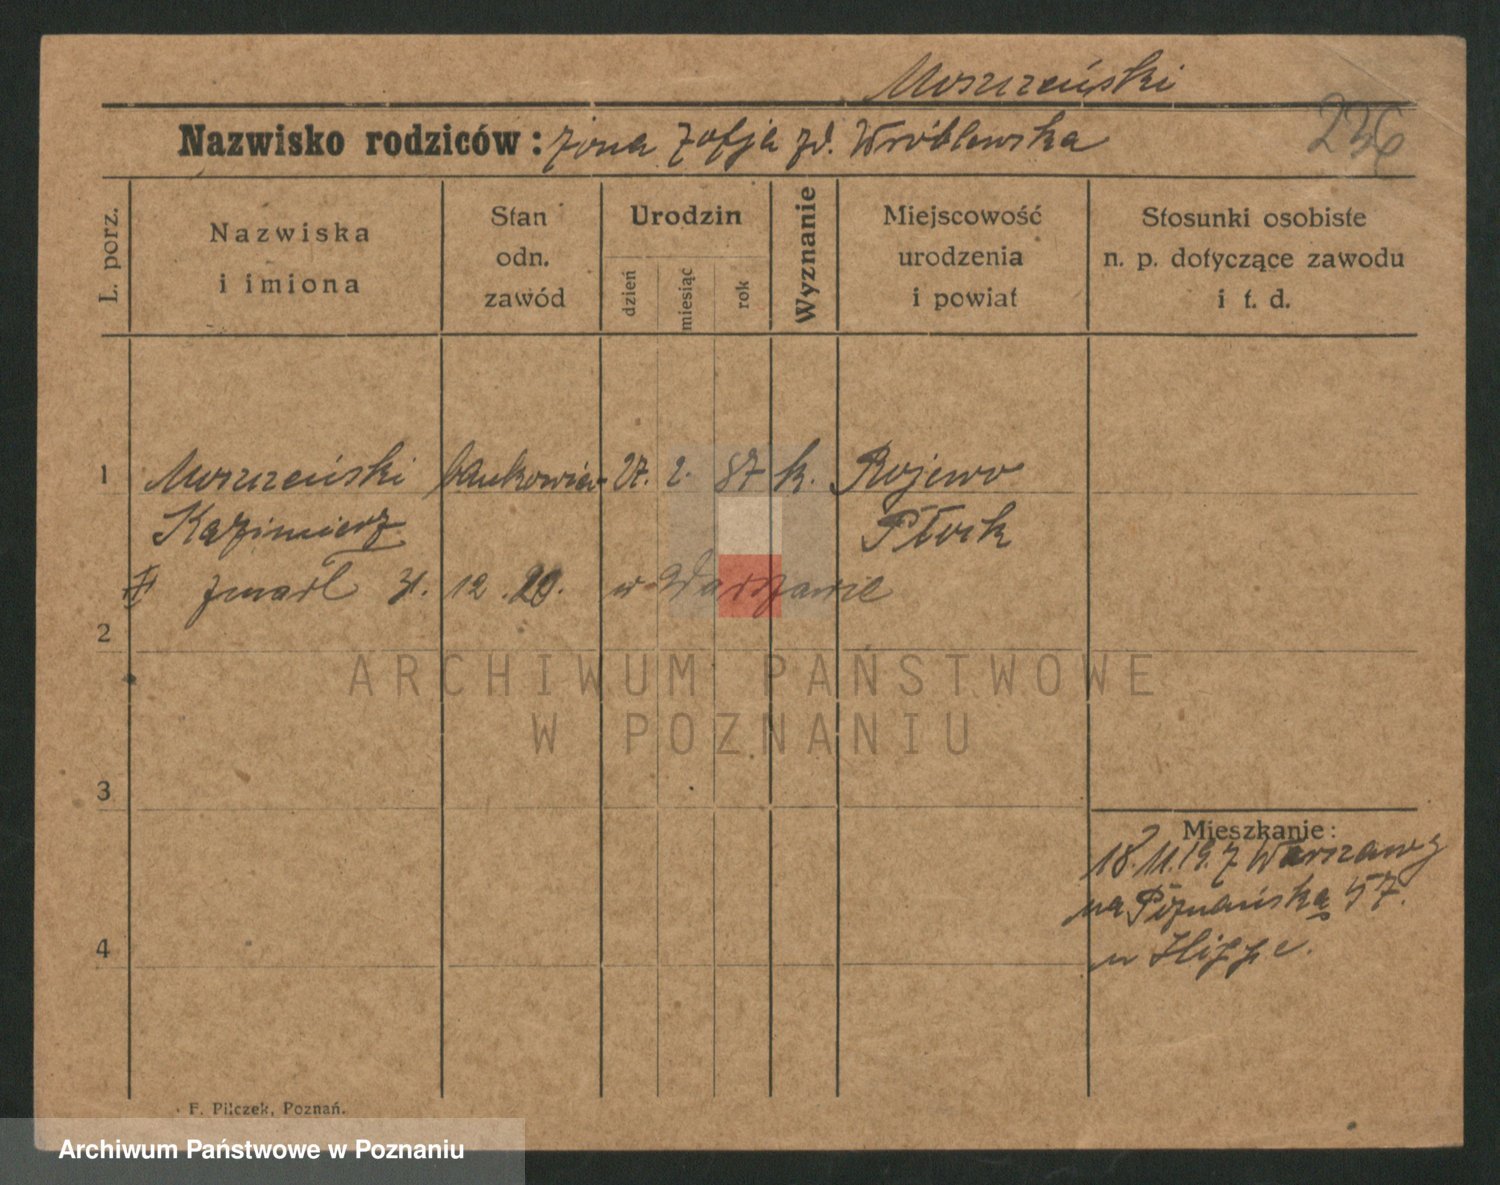 Moszczeński
Nazwisko rodziców: żona Zofja zd. Wróblewska
236
L. porz.
Nazwiska
i imiona
Stan
odn.
zawód
Urodzin
dzień
miesiąc
rok
Wyznanie
Miejscowość
urodzenia
i powiat
Stosunki osobiste
n. p. dotyczące zawodu
i t. d.
1 Moszczeński bankowiec 27. 2. 87 k. Rojewo
Kazimierz Płock
zmarł 31. 12. 20. w Warszawie
2
ARCHIWUM PAŃSTWOWE
W POZNANIU
3
Mieszkanie:
18.11.19. z Warszawy
na Poznańska 57.
4
u
F. Pilczek, Poznań.
Archiwum Państwowe w Poznaniu